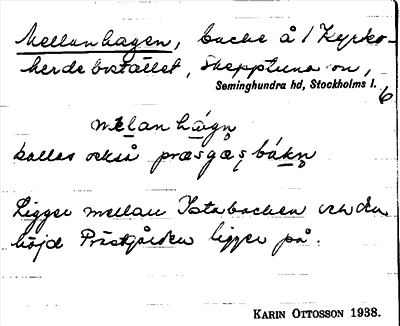 Mellanhagen, backe å 1 Kyrko-
herdebostället, Skepptuna sn,
Seminghundra hd, Stockholms l.
6
męlanhāgn̥
kallas också præsgæsbákn̥
Ligger mellan Istabacken och den
höjd Prästgården ligger på.
KARIN OTTOSSON 1938.